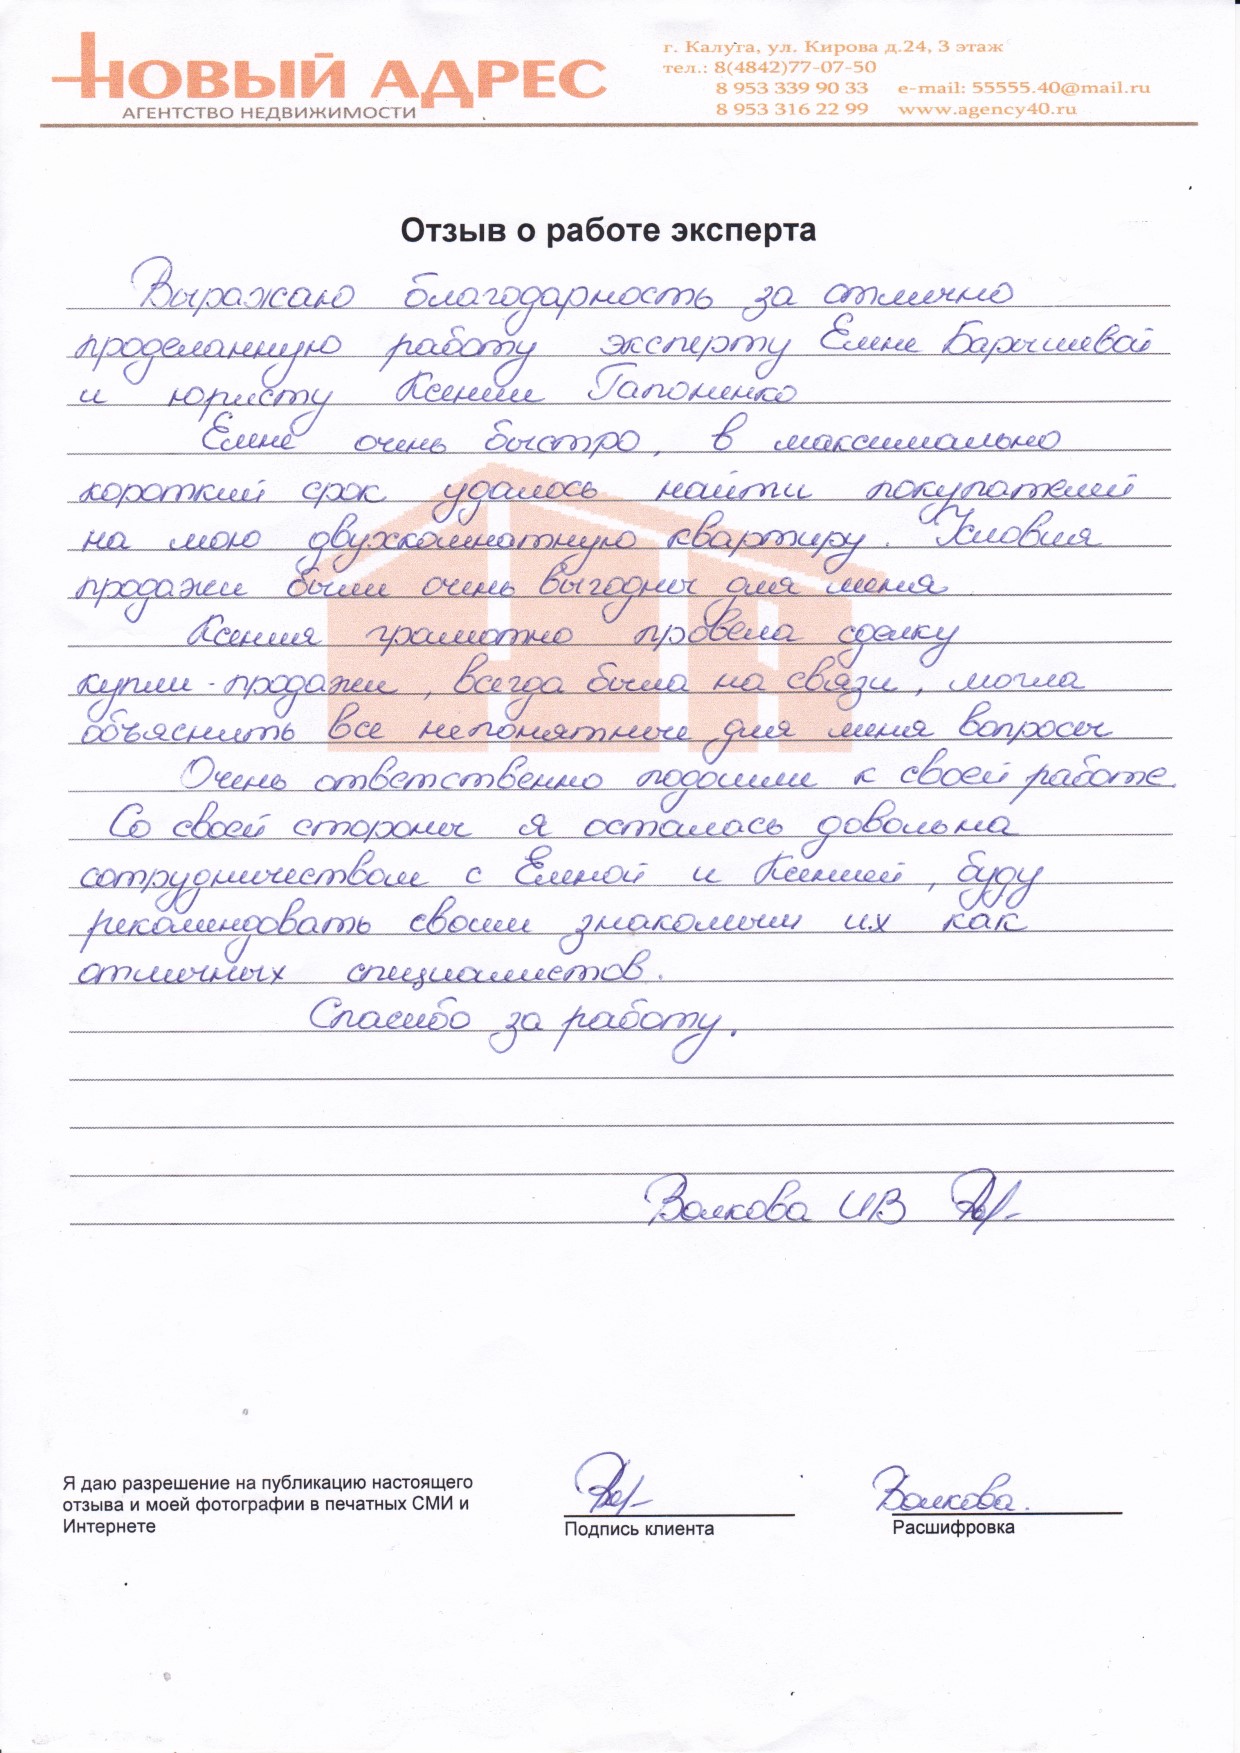 НОВЫЙ АДРЕС
АГЕНТСТВО НЕДВИЖИМОСТИ
г. Калуга, ул. Кирова д.24, 3 этаж
тел.: 8(4842)77-07-50
8 953 339 90 33 e-mail: 55555.40@mail.ru
8 953 316 22 99 www.agency40.ru
Отзыв о работе эксперта
Выражаю благодарность за отлично
проделанную работу эксперту Елене Барышевой
и юристу Ксении Гапоненко
Елене очень быстро, в максимально
короткий срок удалось найти покупателей
на мою двухкомнатную квартиру. Условия
продажи были очень выгодны для меня
Ксения грамотно провела сделку
купли-продажи, всегда была на связи, могла
объяснить все непонятные для меня вопросы
Очень ответственно подошли к своей работе.
Со своей стороны я осталась довольна
сотрудничеством с Еленой и Ксенией, буду
рекомендовать своим знакомым их как
отличных специалистов.
Спасибо за работу.
Волкова ИВ
Я даю разрешение на публикацию настоящего
отзыва и моей фотографии в печатных СМИ и
Интернете
Подпись клиента
Волкова.
Расшифровка